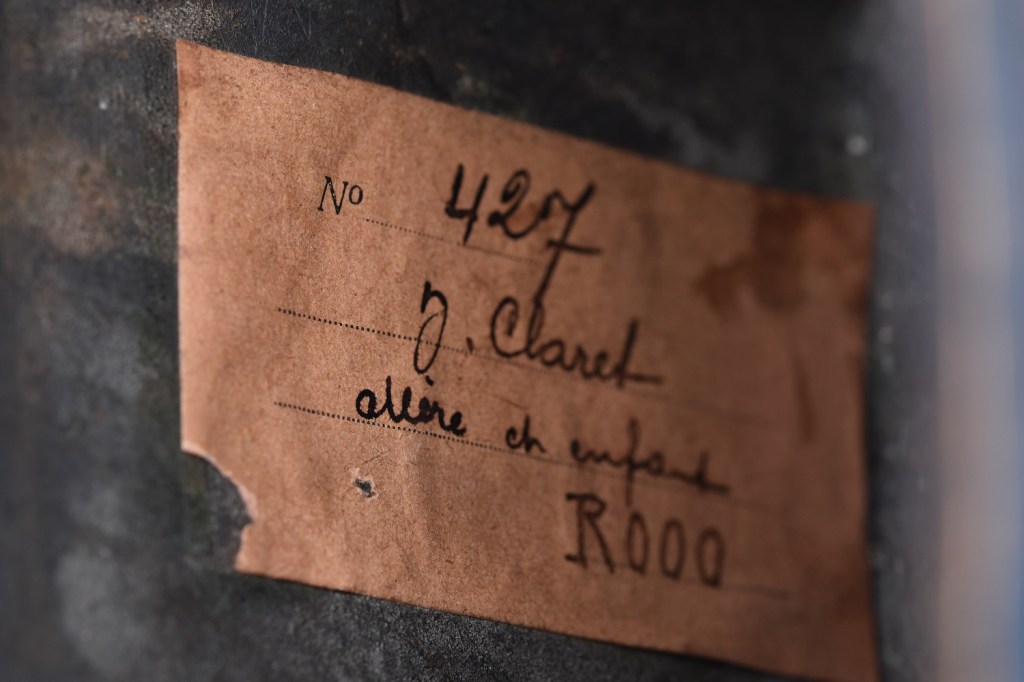 No 427
J. Claret
allère ch enfant
R000